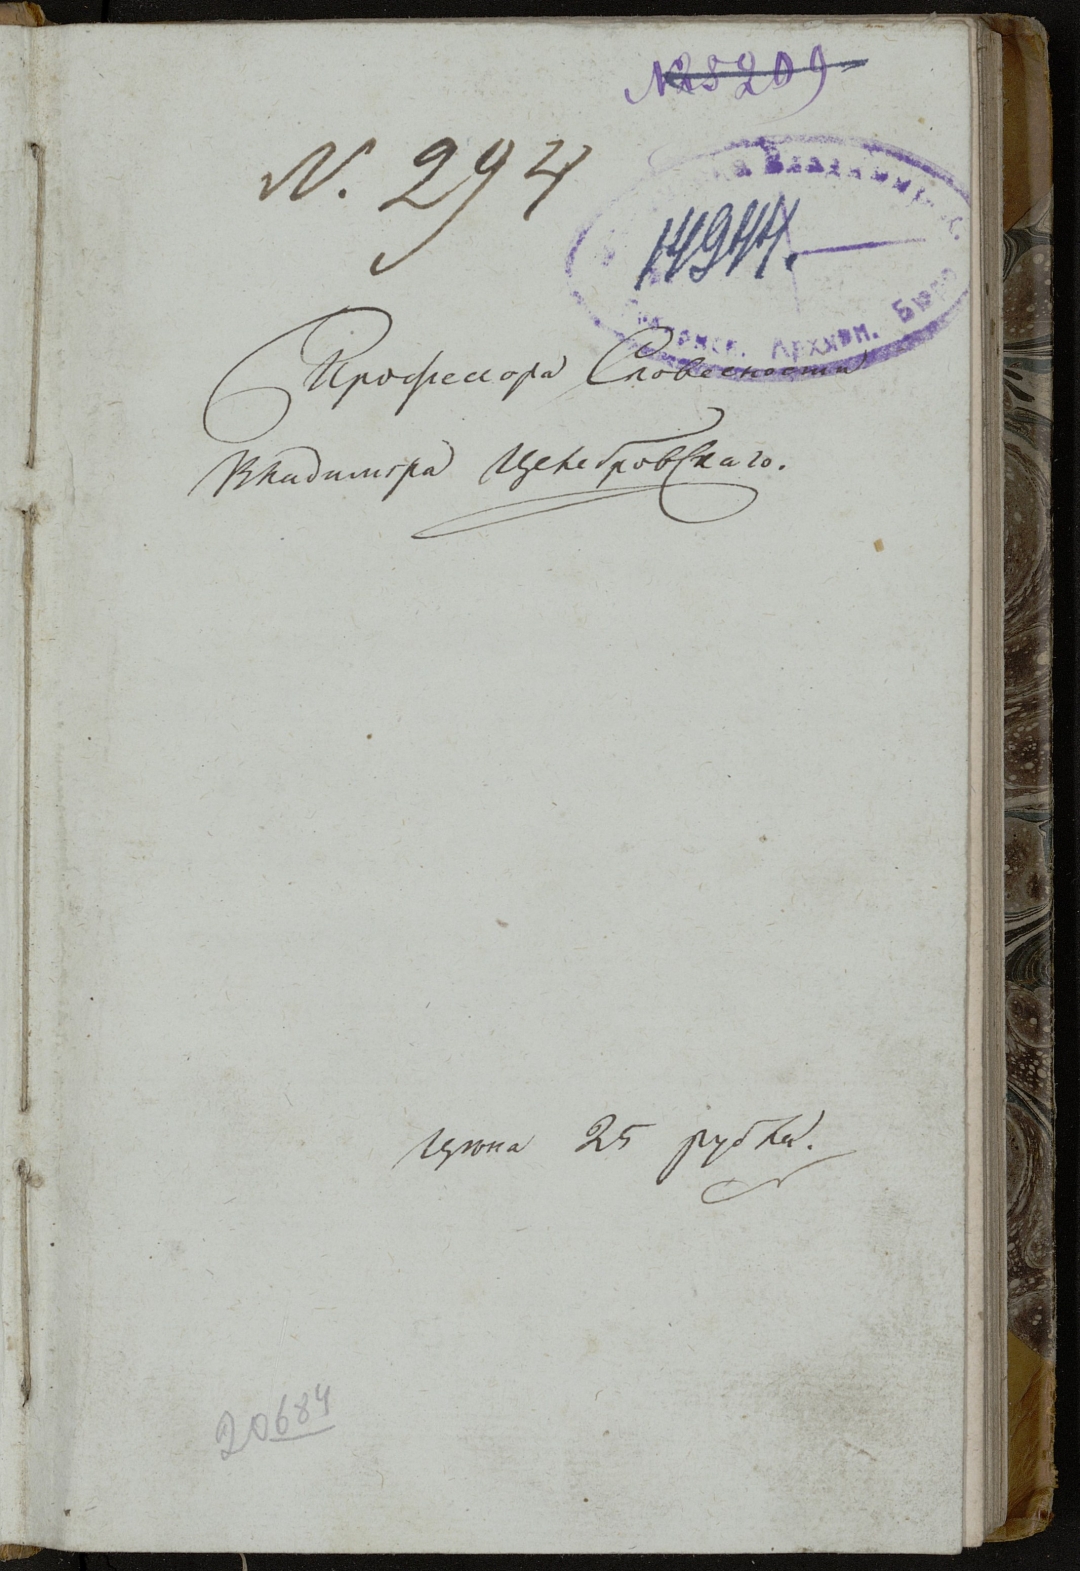 №25209
N. 294
14944.
Архивн. Бюро
Профессора Словесности
Владимира Цветбровскаго.
цѣна 25 рубли.
20684